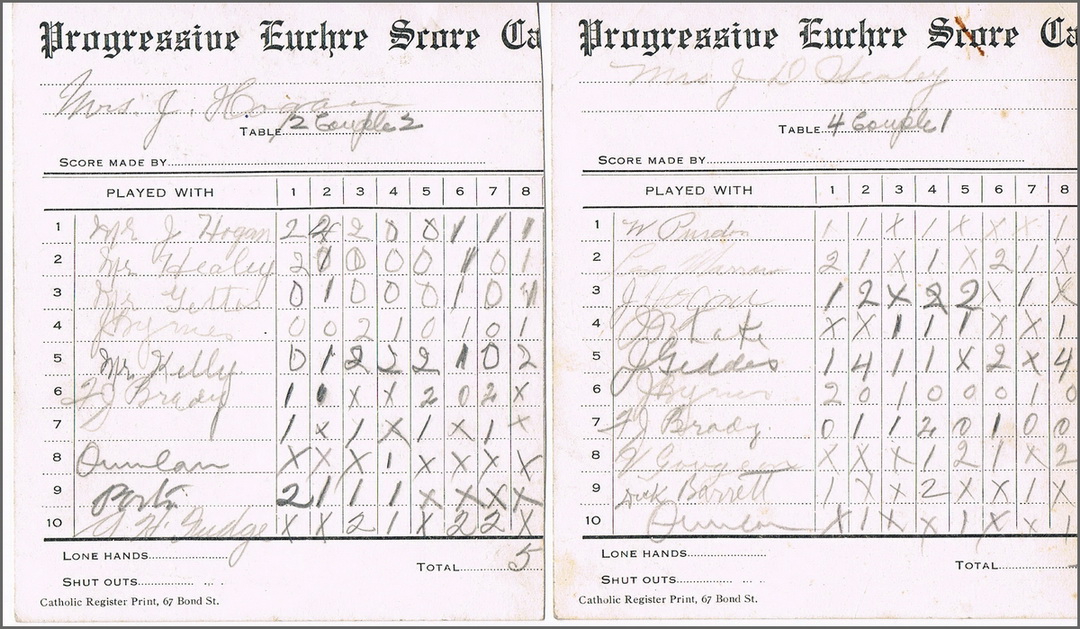 Progressive Euchre Score Ca
Mrs. J. Hogan
TABLE 12 Couple 2
SCORE MADE BY
PLAYED WITH 1 2 3 4 5 6 7 8
1 Mr J Hogan 2 4 2 0 0 1 1 1
2 Mr Healey 2 1 0 0 0 1 0 1
3 Mr 0 1 0 0 0 1 0
4 J Byrnes 0 0 2 1 0 1 0 1
5 Mr Kelly 0 1 2 2 2 1 0 2
6 F J Brady 1 1 X X 2 0 2 X
7 1 X 1 X 1 X 1 X
8 Dunlan X X X 1 X X X X
9 2 1 1 1 X X X X
10 Judge X X 2 1 X 2 2 X
LONE HANDS
TOTAL 5
SHUT OUTS
Catholic Register Print, 67 Bond St.
Progressive Euchre Score Ca
Mrs J D Healey
TABLE 4 Couple 1
SCORE MADE BY
PLAYED WITH 1 2 3 4 5 6 7 8
1 W Purdon 1 1 X 1 X X X 1
2 2 1 X 1 X 2 1 X
3 J Hogan 1 2 X 2 2 X 1 X
4 X X 1 1 1 X X 1
5 J Geddes 1 4 1 1 X 2 X 4
6 J Byrnes 2 0 1 0 0 0 1 0
7 F J Brady 0 1 1 2 0 1 0 0
8 X X X 1 2 1 X 2
9 Dick Barrett 1 X X 2 X X 1 X
10 Dunlan X 1 X X 1 X X 1
LONE HANDS
TOTAL
SHUT OUTS
Catholic Register Print, 67 Bond St.